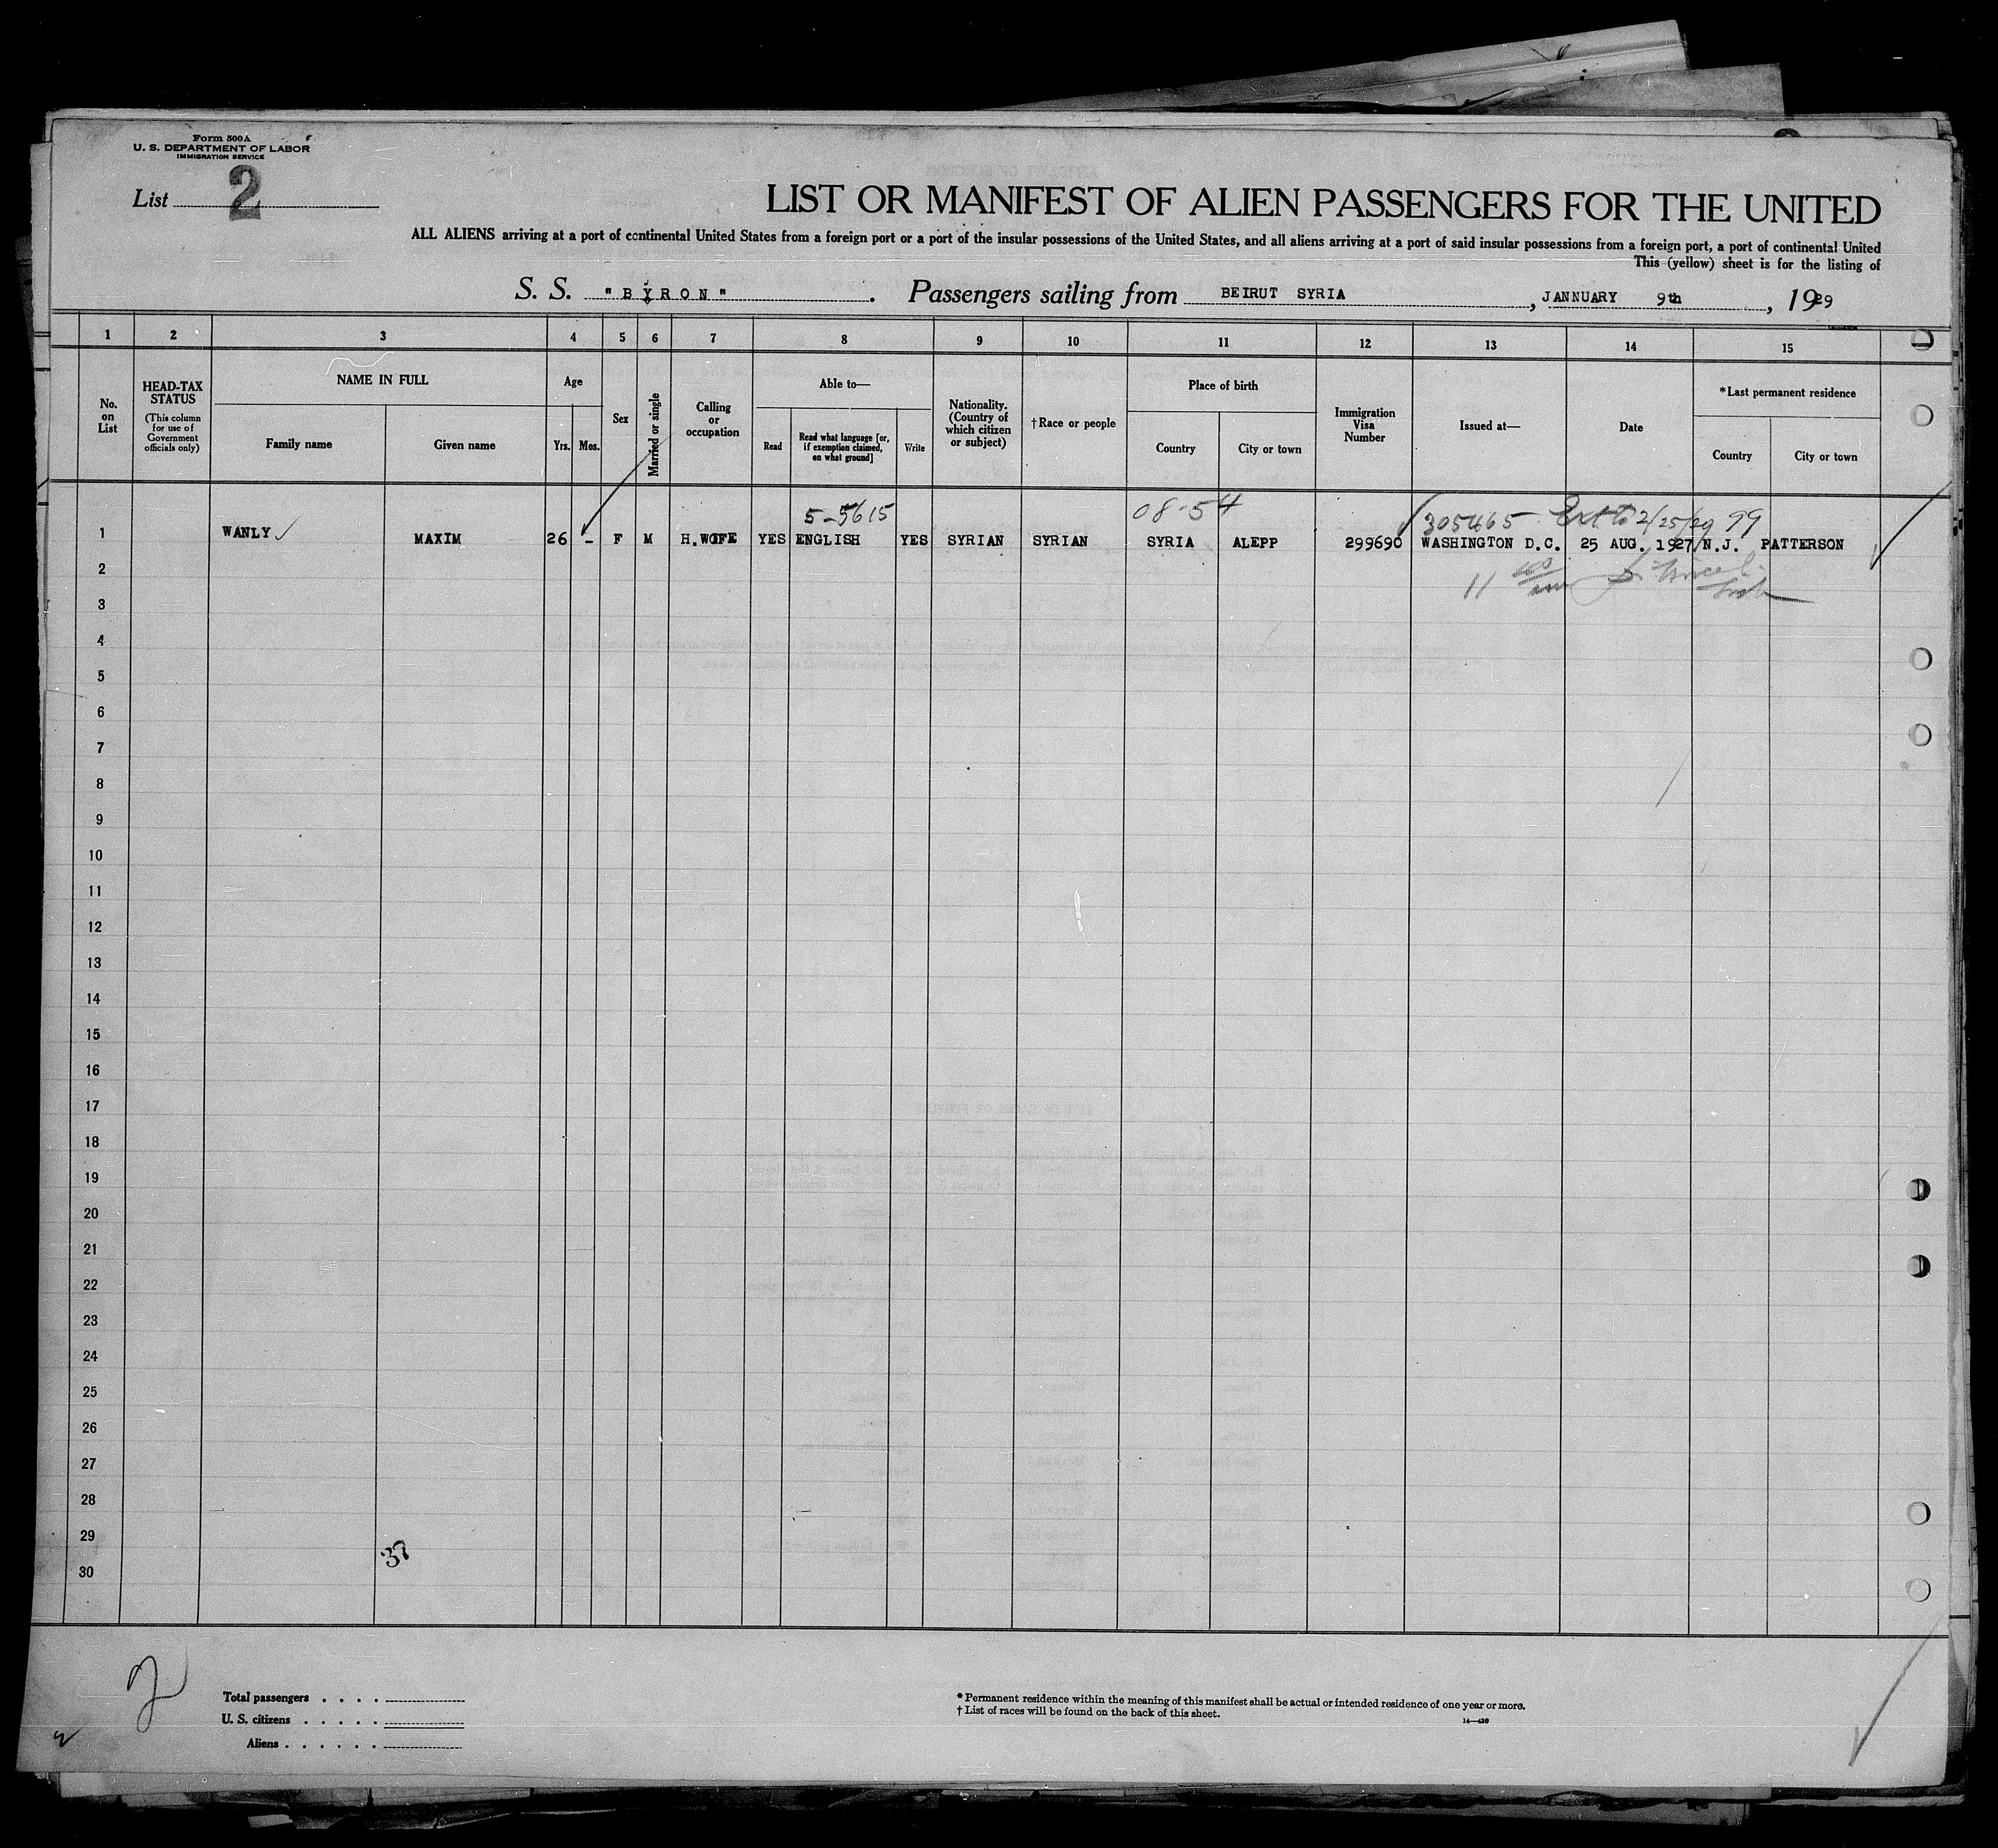 Form 500A
U. S. DEPARTMENT OF LABOR
IMMIGRATION SERVICE
List 2
LIST OR MANIFEST OF ALIEN PASSENGERS FOR THE UNITED
ALL ALIENS arriving at a port of continental United States from a foreign port or a port of the insular possessions of the United States, and all aliens arriving at a port of said insular possessions from a foreign port, a port of continental United
This (yellow) sheet is for the listing of
S. S. "BYRON". Passengers sailing from BEIRUT SYRIA, JANNUARY 9th, 1929
1 2 3 4 5 6 7 8 9 10 11 12 13 14 15
No. on List
HEAD-TAX STATUS (This column for use of Government officials only)
NAME IN FULL
Family name
Given name
Age
Yrs. Mos.
Sex
Married or single
Calling or occupation
Able to—
Read
Read what language [or, if exemption claimed, on what ground]
Write
Nationality. (Country of which citizen or subject)
†Race or people
Place of birth
Country
City or town
Immigration Visa Number
Issued at—
Date
*Last permanent residence
Country
City or town
5-5615 08-54 305465 Ext to 2/25/29 99
1 WANLY MAXIM 26 - F M H.WOFE YES ENGLISH YES SYRIAN SYRIAN SYRIA ALEPP 299690 WASHINGTON D.C. 25 AUG. 1927 N.J. PATTERSON
2
3
4
5
6
7
8
9
10
11
12
13
14
15
16
17
18
19
20
21
22
23
24
25
26
27
28
29
37
30
2
Total passengers . . . .
U. S. citizens . . . . .
Aliens . . . . . .
* Permanent residence within the meaning of this manifest shall be actual or intended residence of one year or more.
† List of races will be found on the back of this sheet.
14—430